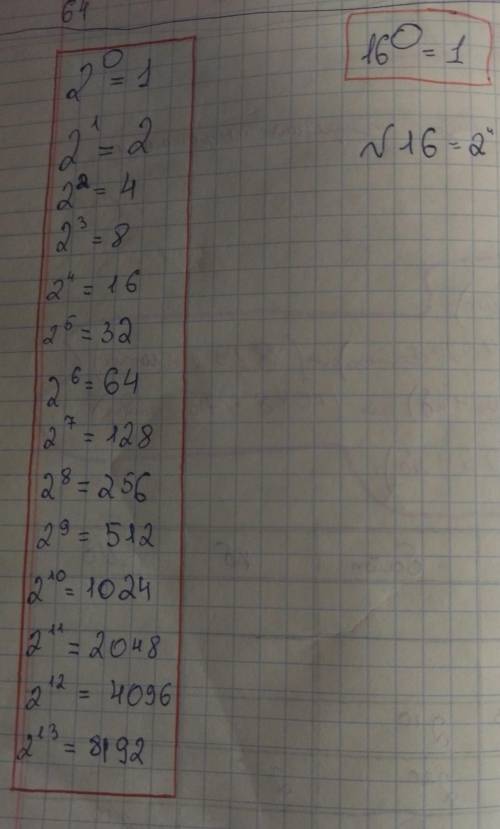 64
2⁰ = 1
2¹ = 2
2² = 4
2³ = 8
2⁴ = 16
2⁵ = 32
2⁶ = 64
2⁷ = 128
2⁸ = 256
2⁹ = 512
2¹⁰ = 1024
2¹¹ = 2048
2¹² = 4096
2¹³ = 8192
16⁰ = 1
N16 = 2⁴